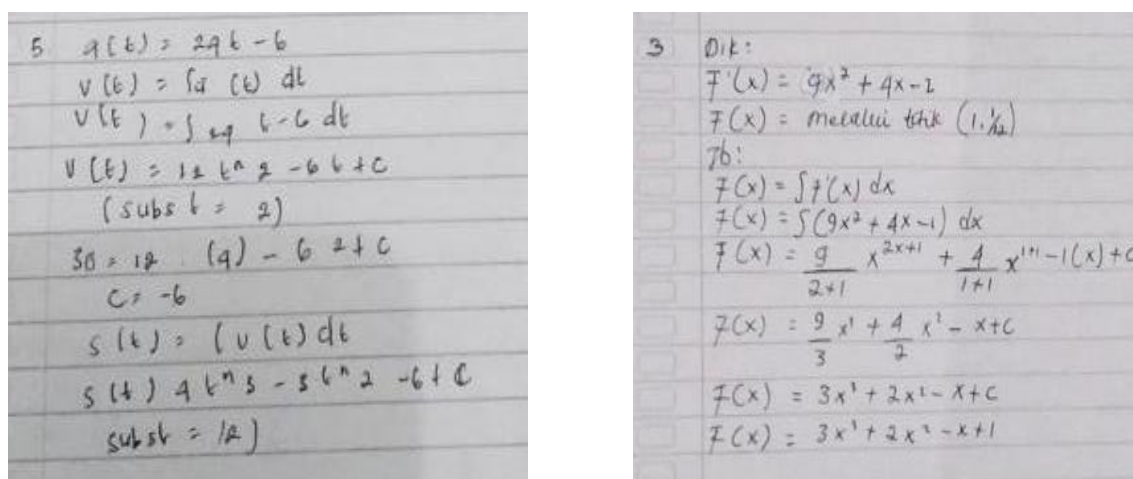 5 a(t) = 24t - 6
v(t) = ∫a (t) dt
v(t) = ∫ 24 t - 6 dt
v(t) = 12 t^ 2 - 6t + c
(subs t = 2)
30 = 12 . (4) - 6 2 + c
c = -6
s(t) = ( v(t) dt
s(t) 4 t^ 3 - 3 t^ 2 - 6t C
subst = 12)
3 Dik:
F'(x) = 9x² + 4x - 1
F(x) = melalui titik (1. 1/12)
Jb:
F(x) = ∫ F'(x) dx
F(x) = ∫(9x² + 4x - 1) dx
F(x) = 9/(2+1) x^(2x+1) + 4/(1+1) x^(1+1) - 1(x) + C
F(x) = 9/3 x³ + 4/2 x² - x + C
F(x) = 3x³ + 2x² - x + C
F(x) = 3x³ + 2x² - x + 1